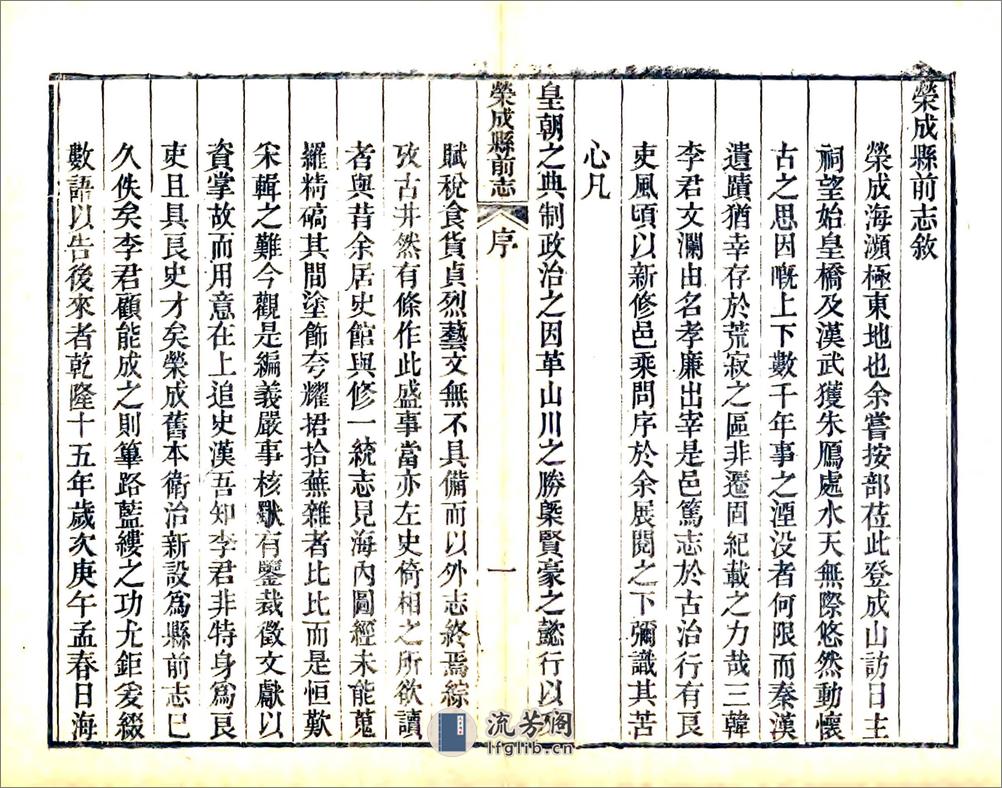 榮成縣前志敘
榮成海瀕極東地也余嘗按部莅此登成山訪日主
祠望始皇橋及漢武獲朱鴈處水天無際悠然動懷
古之思因嘅上下數千年事之湮没者何限而秦漢
遺蹟猶幸存於荒寂之區非遷固紀載之力哉三韓
李君文瀾由名孝廉出宰是邑篤志於古治行有良
吏風頃以新修邑乘問序於余展閱之下彌識其苦
心凡
皇朝之典制政治之因革山川之勝槩賢豪之懿行以
榮成縣前志 序 一
賦稅食貨貞烈藝文無不具備而以外志終焉綜
攷古井然有條作此盛事當亦左史倚相之所欲讀
者與昔余居史館與修一統志見海內圖經未能蒐
羅精碻其間塗飾夸耀捃拾蕪雜者比比而是恒歎
宋輯之難今觀是編義嚴事核斅有鑒裁徵文獻以
資掌故而用意在上追史漢吾知李君非特身為良
吏且具良史才矣榮成舊本衛治新設為縣前志已
久佚矣李君顧能成之則篳路藍縷之功尤鉅爰綴
數語以告後來者乾隆十五年歲次庚午孟春日海
流芳阁
lfglib.com